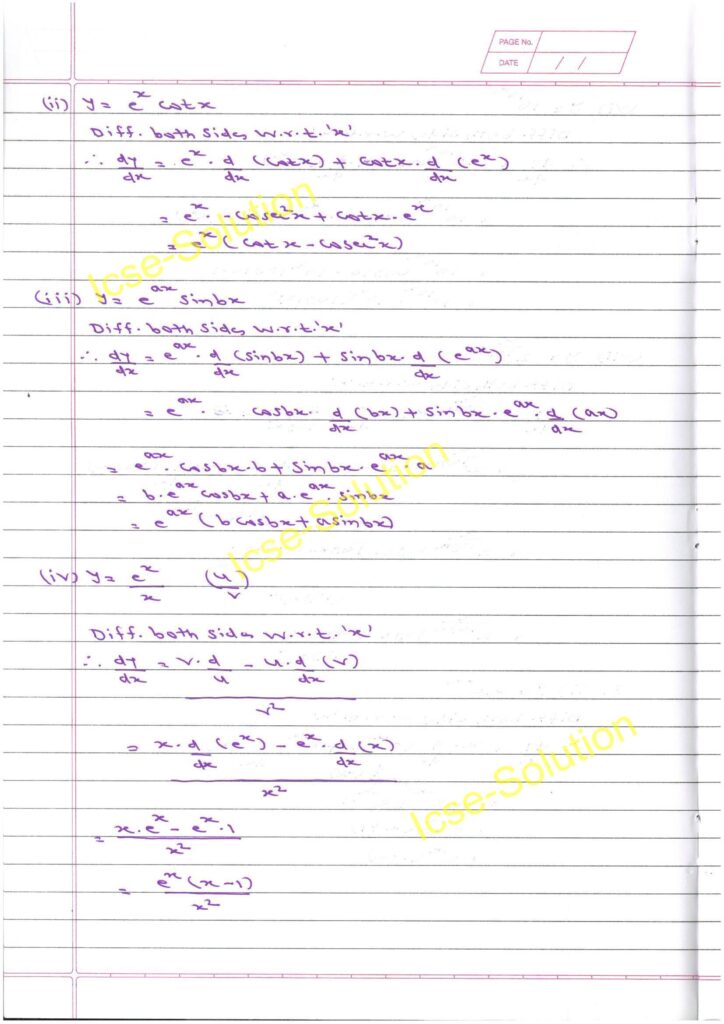 PAGE No.
DATE / /
(ii) y = e^x cotx
Diff. both sides w.r.t. 'x'
∴ dy/dx = e^x . d/dx (cotx) + cotx . d/dx (e^x)
= e^x . -cosec²x + cotx . e^x
= e^x (cotx - cosec²x)
(iii) y = e^ax sinbx
Diff. both sides w.r.t. 'x'
∴ dy/dx = e^ax . d/dx (sinbx) + sinbx . d/dx (e^ax)
= e^ax . cosbx . d/dx (bx) + sinbx . e^ax . d/dx (ax)
= e^ax . cosbx . b + sinbx . e^ax . a
= b . e^ax cosbx + a . e^ax . sinbx
= e^ax (b cosbx + a sinbx)
(iv) y = e^x/x (u/v)
Diff. both sides w.r.t. 'x'
∴ dy/dx = v . d/u - u . d/dx (v) / v²
= x . d/dx (e^x) - e^x . d/dx (x) / x²
= x . e^x - e^x . 1 / x²
= e^x (x - 1) / x²
Icse-Solution
Icse-Solution
Icse-Solution